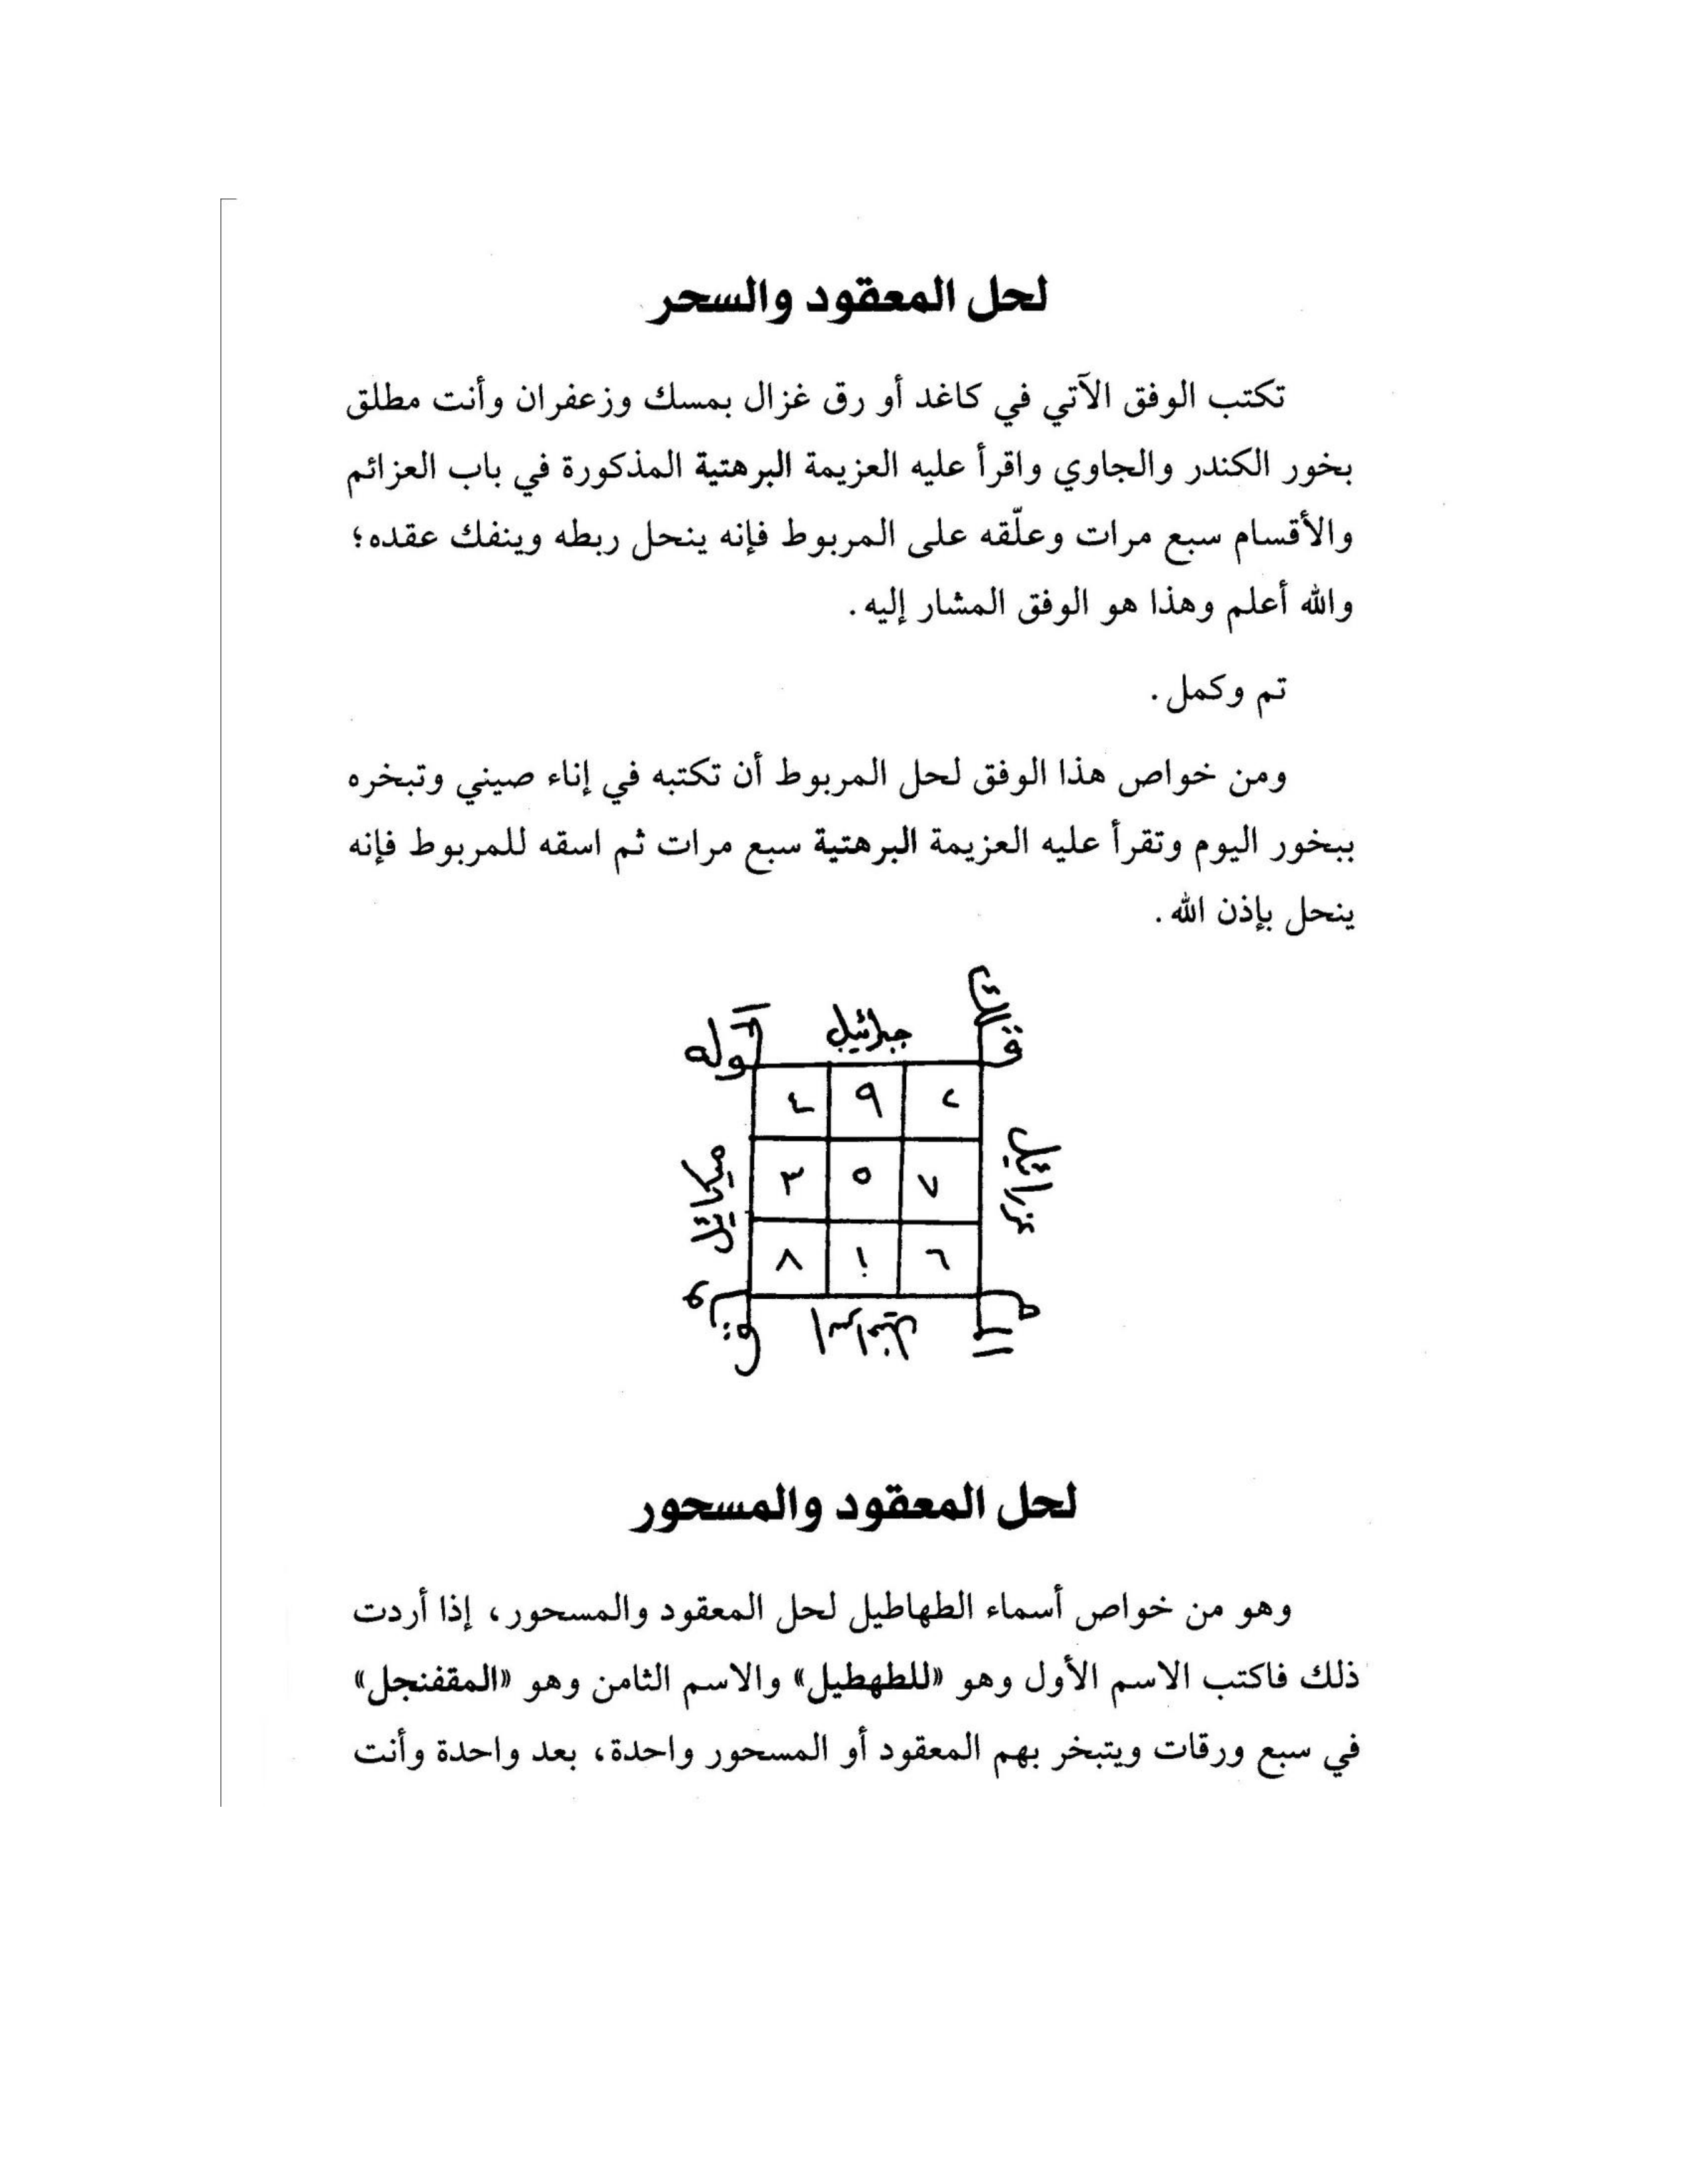 لحل المعقود والسحر
تكتب الوفق الآتي في كاغد أو رق غزال بمسك وزعفران وأنت مطلق
بخور الكندر والجاوي واقرأ عليه العزيمة البرهتية المذكورة في باب العزائم
والأقسام سبع مرات وعلّقه على المربوط فإنه ينحل ربطه وينفك عقده؛
والله أعلم وهذا هو الوفق المشار إليه.
تم وكمل.
ومن خواص هذا الوفق لحل المربوط أن تكتبه في إناء صيني وتبخره
ببخور اليوم وتقرأ عليه العزيمة البرهتية سبع مرات ثم اسقه للمربوط فإنه
ينحل بإذن الله.
جبرائيل
٢ ٩ ٤
عزرائيل
٧ ٥ ٣
ميكائيل
٦ ١ ٨
اسرافيل
لحل المعقود والمسحور
وهو من خواص أسماء الطهاطيل لحل المعقود والمسحور، إذا أردت
ذلك فاكتب الاسم الأول وهو «للطهطيل» والاسم الثامن وهو «المقفنجل»
في سبع ورقات ويتبخر بهم المعقود أو المسحور واحدة، بعد واحدة وأنت